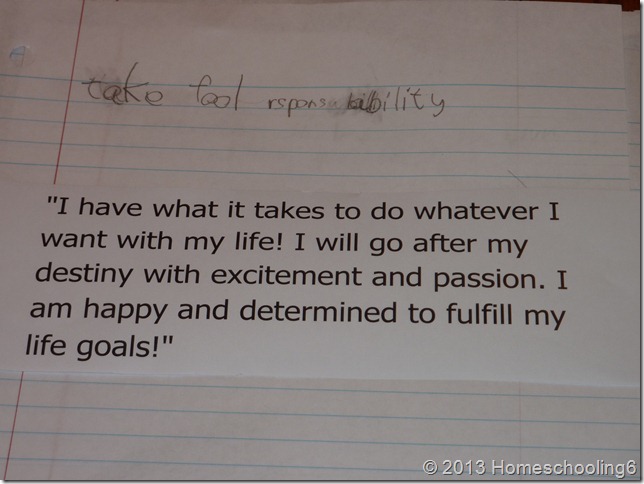 take fool rsponsibility
"I have what it takes to do whatever I
want with my life! I will go after my
destiny with excitement and passion. I
am happy and determined to fulfill my
life goals!"
© 2013 Homeschooling6